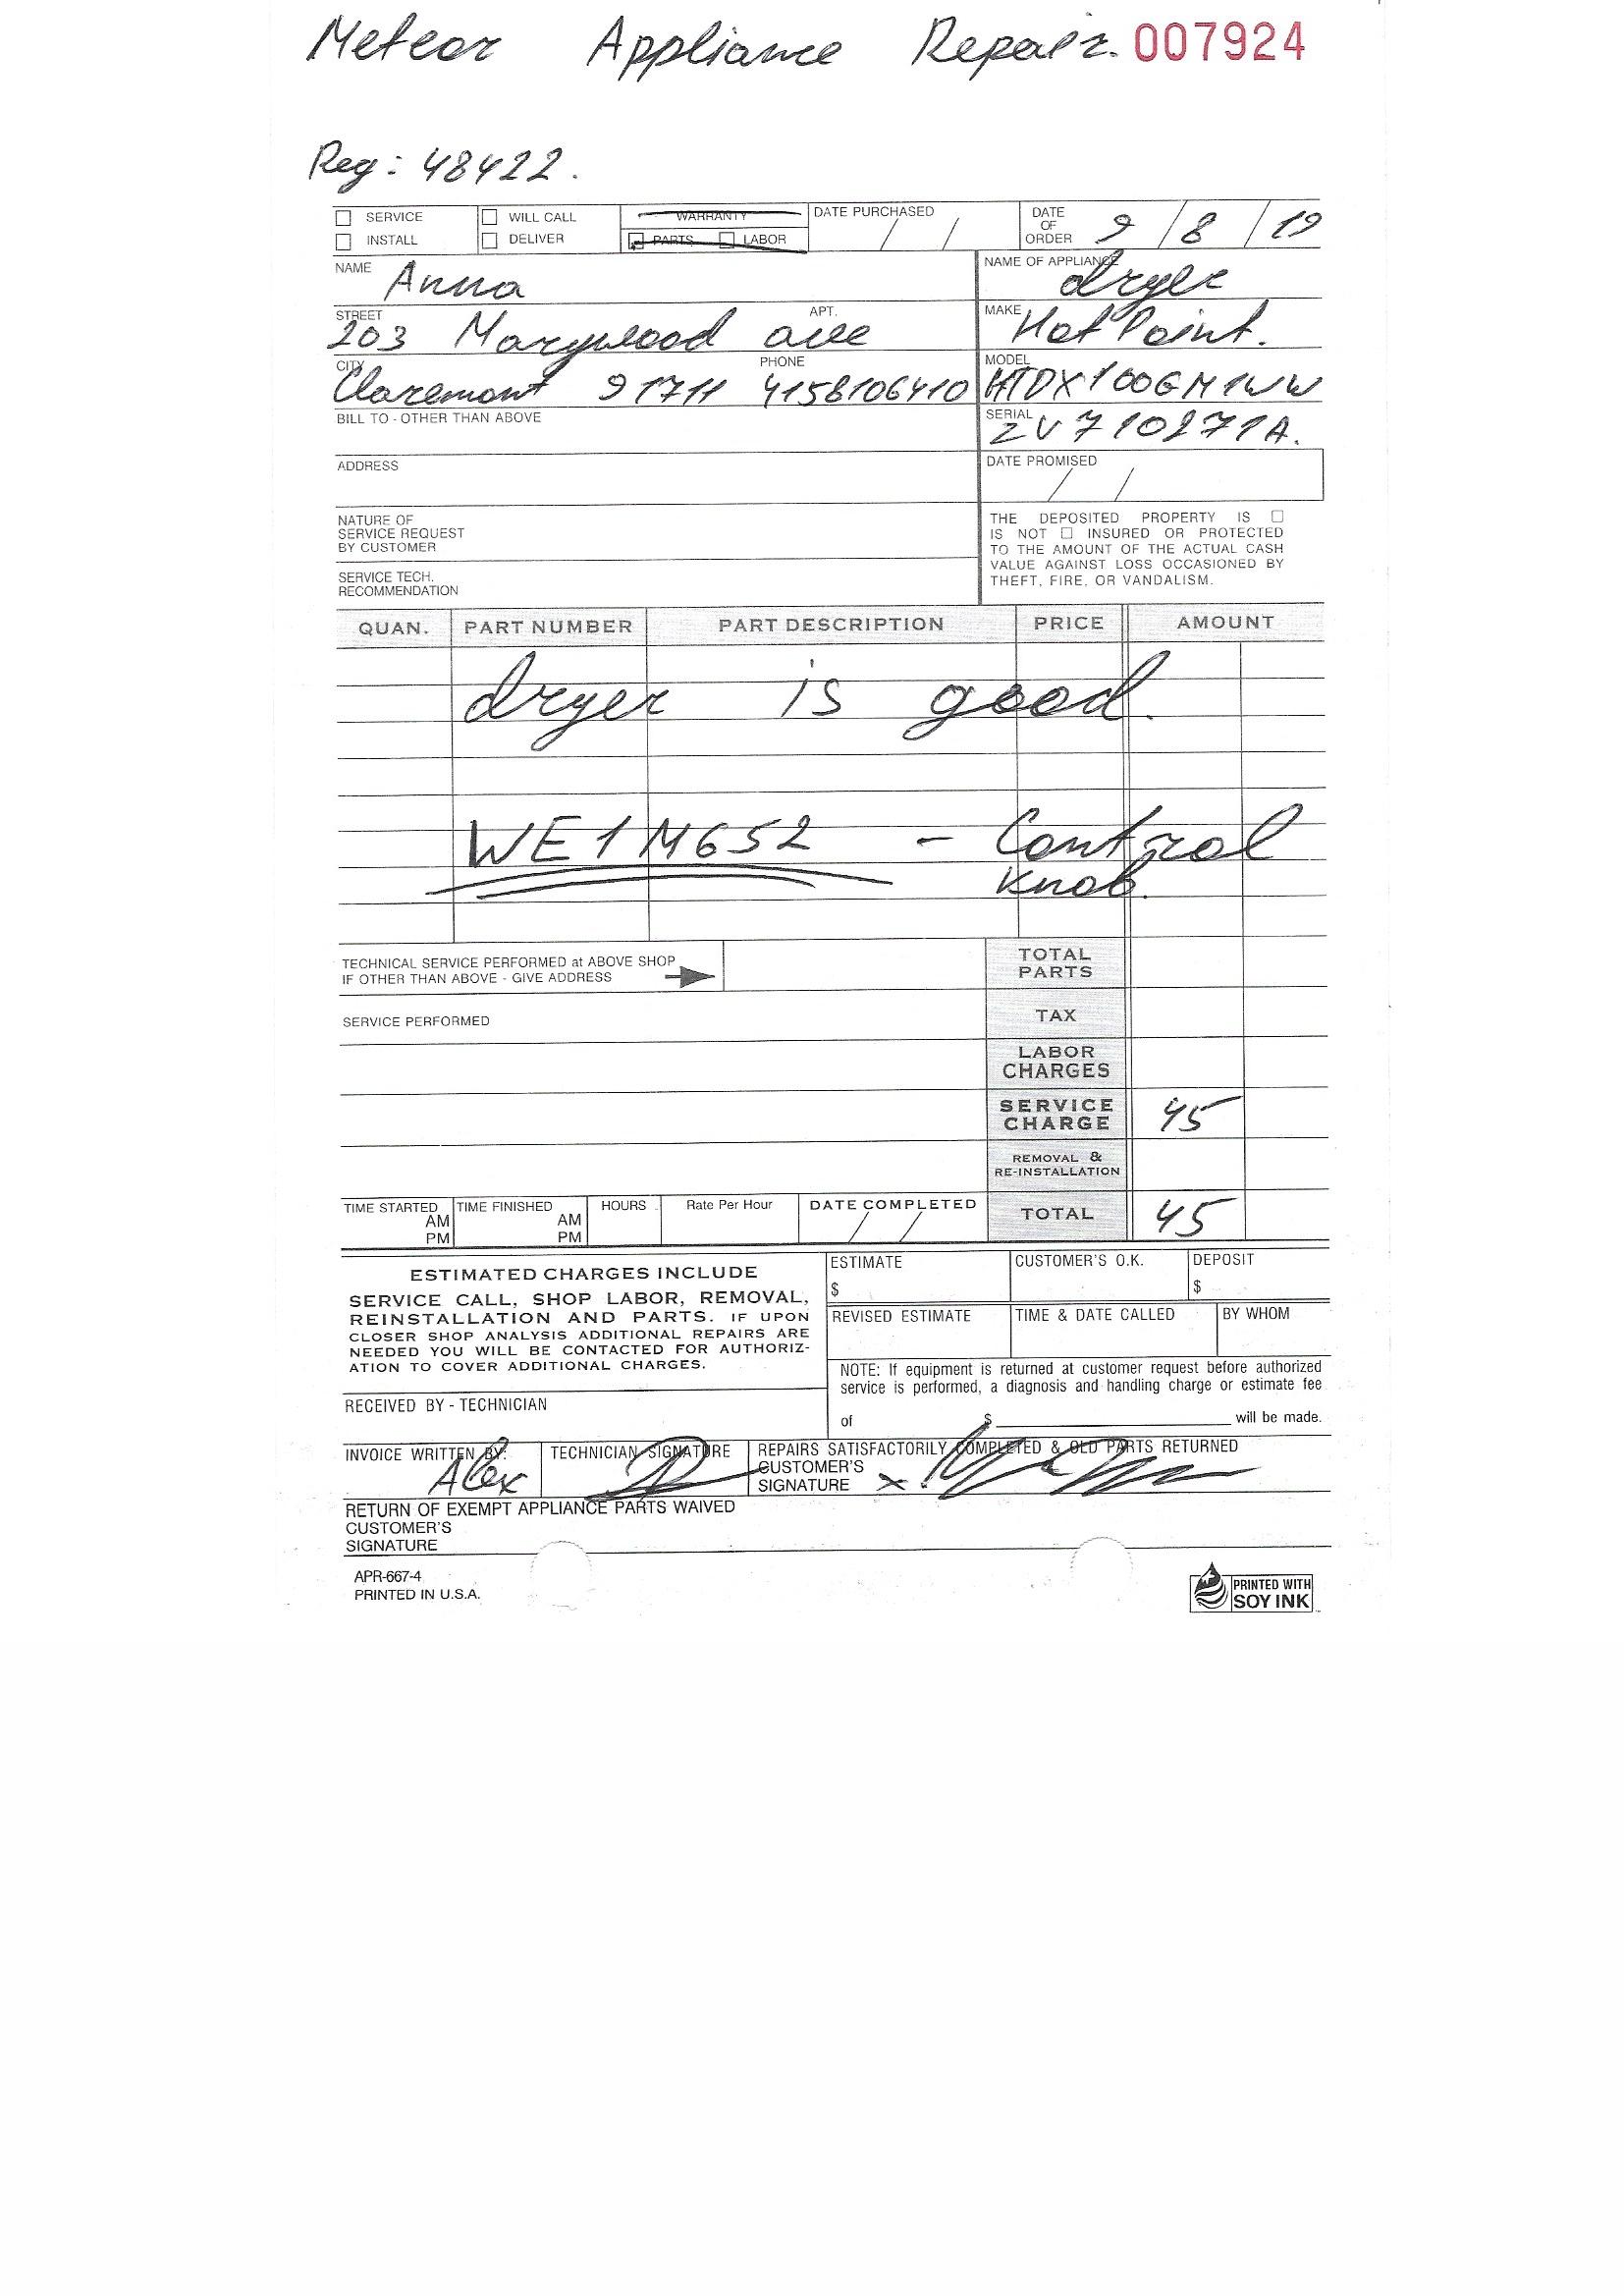 Meteor Appliance Repair. 007924
Reg: 48422.
SERVICE WILL CALL WARRANTY DATE PURCHASED / / DATE OF ORDER 9 / 8 / 19
INSTALL DELIVER PARTS LABOR
NAME Anna NAME OF APPLIANCE dryer
STREET 203 Marywood ave APT. MAKE HotPoint.
CITY Claremont 91711 PHONE 4158106410 MODEL HTDX100GM1WW
BILL TO - OTHER THAN ABOVE SERIAL ZV710271A.
ADDRESS DATE PROMISED / /
NATURE OF
SERVICE REQUEST
BY CUSTOMER
THE DEPOSITED PROPERTY IS
IS NOT INSURED OR PROTECTED
TO THE AMOUNT OF THE ACTUAL CASH
VALUE AGAINST LOSS OCCASIONED BY
THEFT, FIRE, OR VANDALISM.
SERVICE TECH.
RECOMMENDATION
QUAN. PART NUMBER PART DESCRIPTION PRICE AMOUNT
dryer is good.
WE1M652 - Control
knob.
TECHNICAL SERVICE PERFORMED at ABOVE SHOP
IF OTHER THAN ABOVE - GIVE ADDRESS
TOTAL
PARTS
SERVICE PERFORMED
TAX
LABOR
CHARGES
SERVICE
CHARGE 45
REMOVAL &
RE-INSTALLATION
TIME STARTED AM PM TIME FINISHED AM PM HOURS Rate Per Hour DATE COMPLETED / / TOTAL 45
ESTIMATED CHARGES INCLUDE
SERVICE CALL, SHOP LABOR, REMOVAL,
REINSTALLATION AND PARTS. IF UPON
CLOSER SHOP ANALYSIS ADDITIONAL REPAIRS ARE
NEEDED YOU WILL BE CONTACTED FOR AUTHORIZ-
ATION TO COVER ADDITIONAL CHARGES.
ESTIMATE $ CUSTOMER'S O.K. DEPOSIT $
REVISED ESTIMATE TIME & DATE CALLED BY WHOM
NOTE: If equipment is returned at customer request before authorized
service is performed, a diagnosis and handling charge or estimate fee
of $ will be made.
RECEIVED BY - TECHNICIAN
INVOICE WRITTEN BY: Alex TECHNICIAN SIGNATURE REPAIRS SATISFACTORILY COMPLETED & OLD PARTS RETURNED
CUSTOMER'S
SIGNATURE x
RETURN OF EXEMPT APPLIANCE PARTS WAIVED
CUSTOMER'S
SIGNATURE
APR-667-4
PRINTED IN U.S.A.
PRINTED WITH
SOY INK